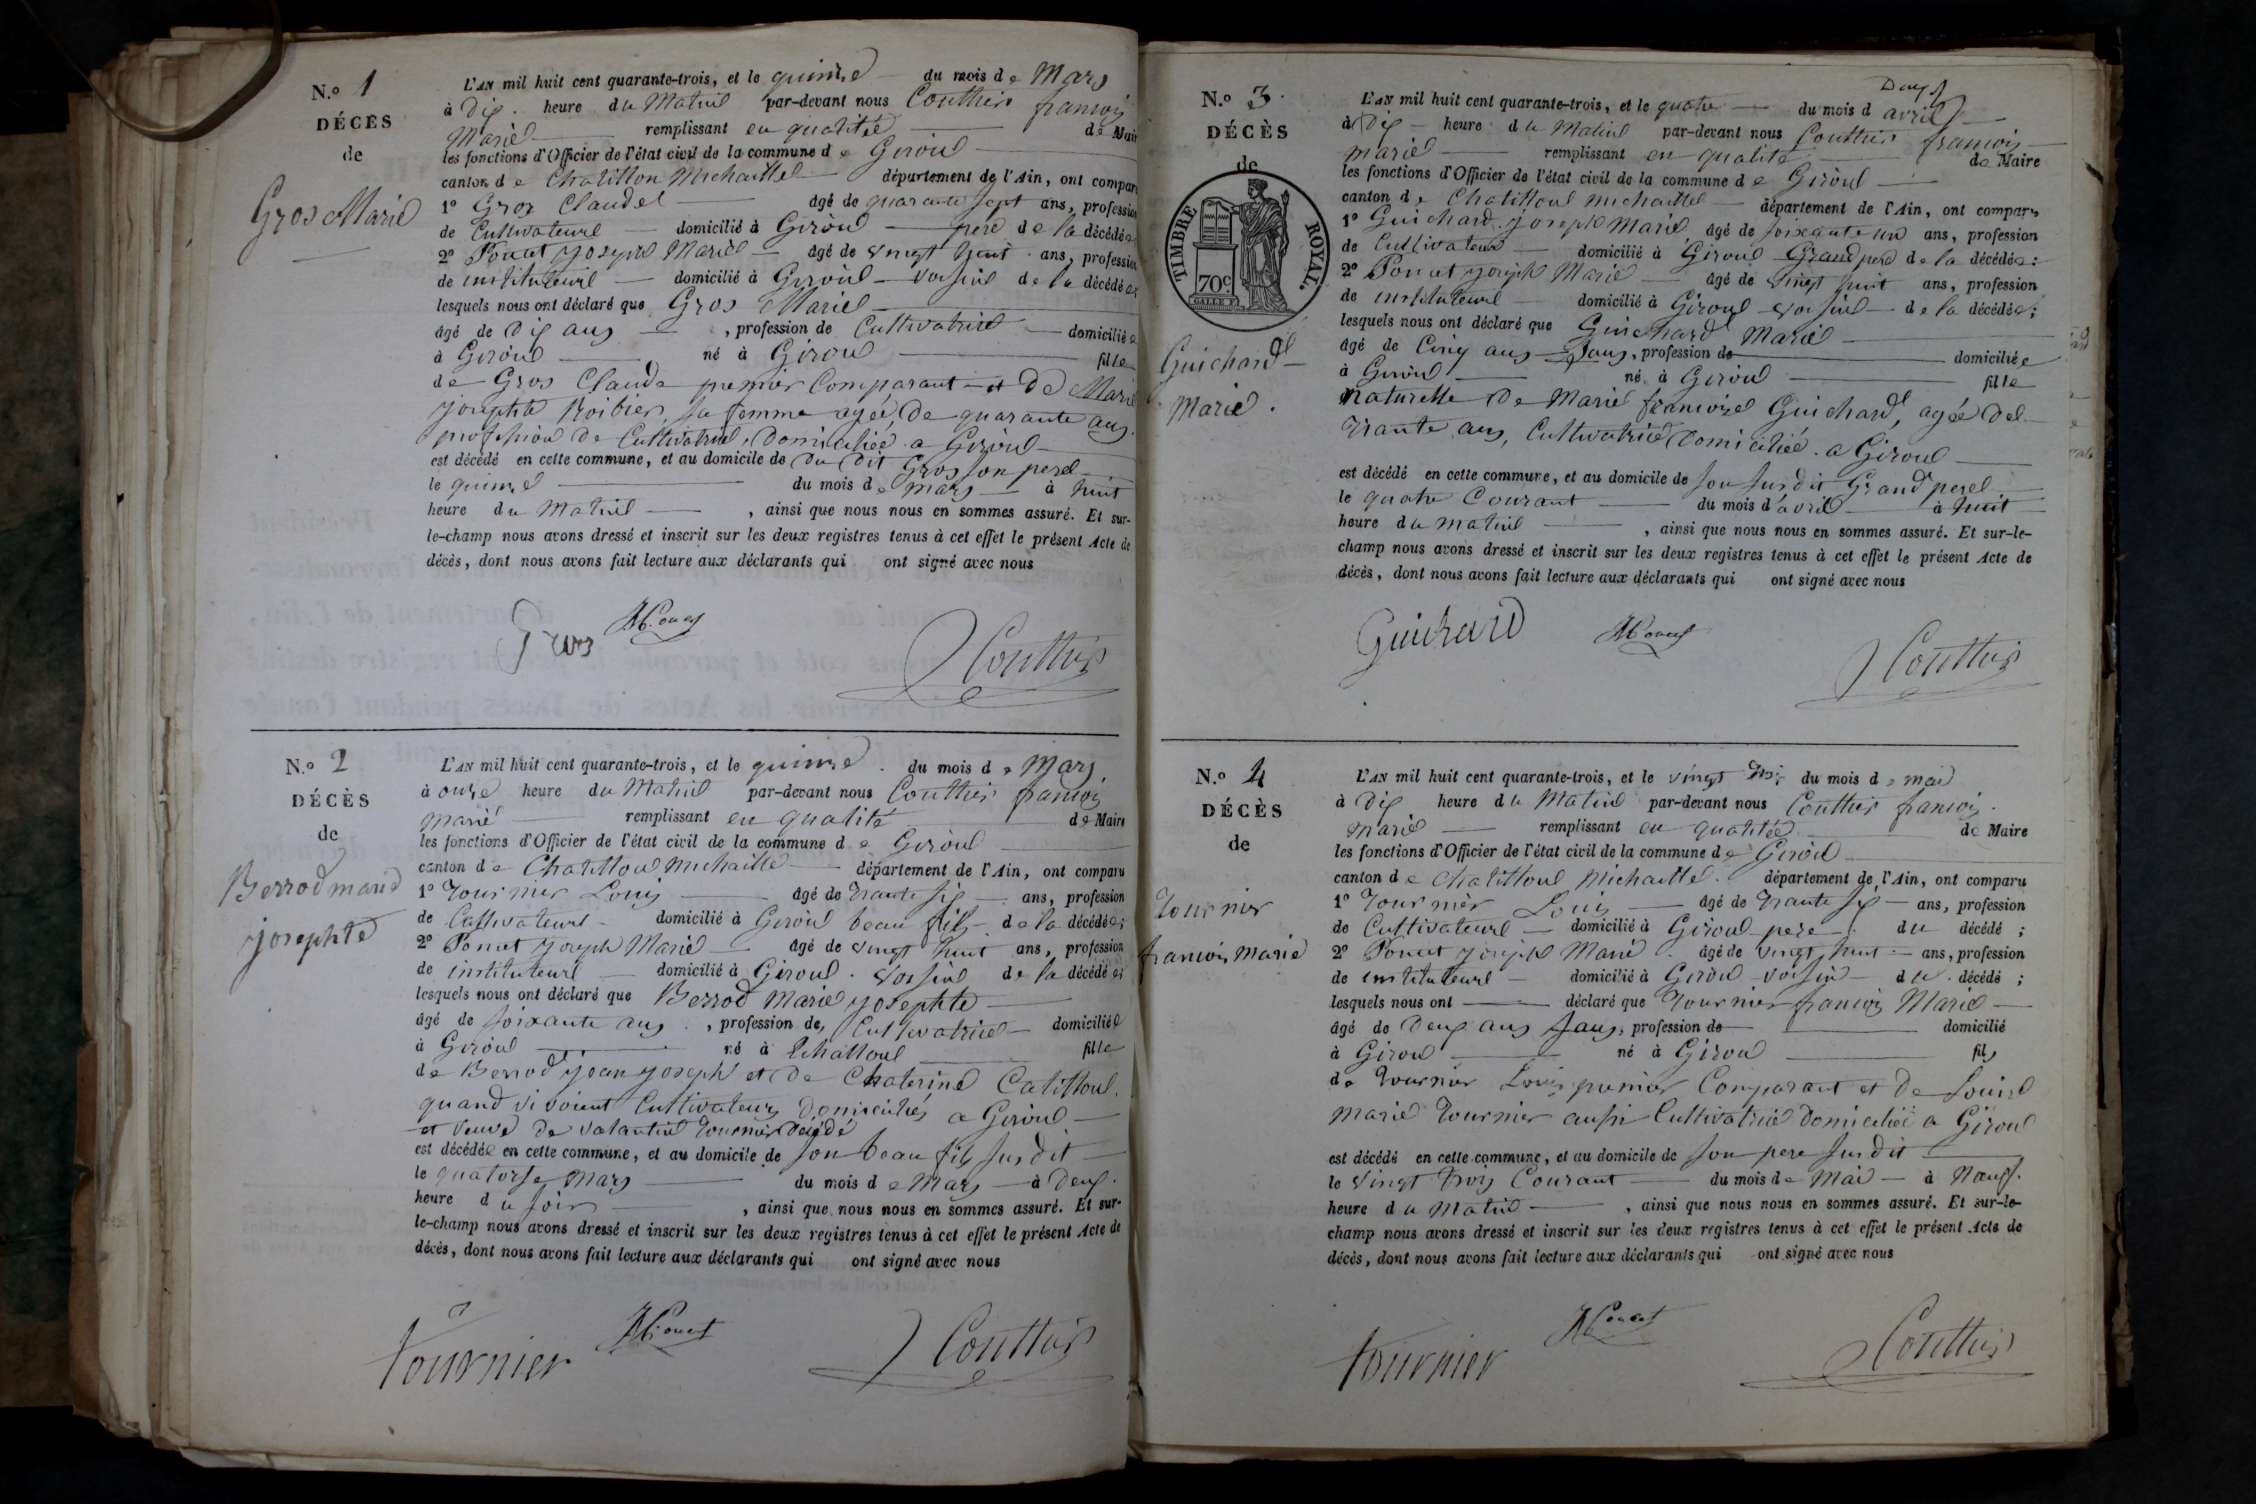 N.o 1
DÉCÈS
de
Gros Marie
L'AN mil huit cent quarante-trois, et le quinze du mois de Mars
à Dix heure du Matin par-devant nous Couttier francois
Marie remplissant en qualitée de Mair
les fonctions d'Officier de l'état civil de la commune de Giron
canton de Chatillon Michaille département de l'Ain, ont compar
1o Gros Claude âgé de quarante sept ans, profession
de Cultivateur domicilié à Giron pere de la décédée
2o Poncet Joseph Marie âgé de vingt huit ans, profession
de instituteur domicilié à Giron voisin de la décédée
lesquels nous ont déclaré que Gros Marie
âgé de Dix ans, profession de Cultivatrice domiciliée
à Giron né à Giron fille
de Gros Claude premier Comparant et De Marie
Josephte Roibier, sa femme agée De quarante ans
profession De Cultivatrice, Domiciliée a Giron
est décédé en cette commune, et au domicile de Du Dit Gros son pere
le quinze du mois de mars à huit
heure du Matin, ainsi que nous nous en sommes assuré. Et sur-
le-champ nous avons dressé et inscrit sur les deux registres tenus à cet effet le présent Acte de
décès, dont nous avons fait lecture aux déclarants qui ont signé avec nous
Gros Poncet Couttier
N.o 2
DÉCÈS
de
Berrod marie
josephte
L'AN mil huit cent quarante-trois, et le quinze du mois de Mars
à onze heure du Matin par-devant nous Couttier francois
marie remplissant en qualité de Maire
les fonctions d'Officier de l'état civil de la commune de Giron
canton de Chatillon Michaille département de l'Ain, ont comparu
1o Tournier Louis âgé de Trante six ans, profession
de Cultivateur domicilié à Giron beau fils de la décédée;
2o Poncet Joseph Marie âgé de vingt huit ans, profession
de instituteur domicilié à Giron voisin de la décédée;
lesquels nous ont déclaré que Berrod Marie josephte
âgé de soixante ans, profession de Cultivatrice domiciliée
à Giron né à Echallon fille
de Berrod Jean Joseph et De Chaterine Catillon
quand vivoient Cultivateurs Domiciliés a Giron
et veuve De valantin Tournier Décédé
est décédée en cette commune, et au domicile de son beau fils susdit
le quatorse Mars du mois de Mars à Deux
heure du soir, ainsi que nous nous en sommes assuré. Et sur-
le-champ nous avons dressé et inscrit sur les deux registres tenus à cet effet le présent Acte de
décès, dont nous avons fait lecture aux déclarants qui ont signé avec nous
tournier Poncet Couttier
N.o 3
DÉCÈS
de
TIMBRE ROYAL.
70c
Guichard
Marie
L'AN mil huit cent quarante-trois, et le quatre du mois d avril
à Dix heure du Matin par-devant nous Couttier francois
marie remplissant en qualité de Maire
les fonctions d'Officier de l'état civil de la commune de Giron
canton de Chatillon michaille département de l'Ain, ont comparu
1o Guichard Joseph Marie âgé de soixante un ans, profession
de Cultivateur domicilié à Giron Grand pere de la décédée:
2o Poncet Joseph Marie âgé de vingt huit ans, profession
de instituteur domicilié à Giron voisin de la décédée;
lesquels nous ont déclaré que Guichard Marie
âgé de Cinq ans sans, profession de domiciliée
à Giron né à Giron fille
naturelle De Marie francoise Guichard, agée De
Trante ans, Cultivatrice Domiciliée a Giron
est décédé en cette commune, et au domicile de son susdit Grand pere
le quatre Courant du mois d'avril à huit
heure du matin, ainsi que nous nous en sommes assuré. Et sur-le-
champ nous avons dressé et inscrit sur les deux registres tenus à cet effet le présent Acte de
décès, dont nous avons fait lecture aux déclarants qui ont signé avec nous
Guichard Poncet Couttier
N.o 4
DÉCÈS
de
Tournier
francois Marie
L'AN mil huit cent quarante-trois, et le vingt trois du mois de mai
à Dix heure du Matin par-devant nous Couttier francois
Marie remplissant en qualitée de Maire
les fonctions d'Officier de l'état civil de la commune de Giron
canton de Chatillon Michaille département de l'Ain, ont comparu
1o Tournier Louis âgé de Trante six ans, profession
de Cultivateur domicilié à Giron pere du décédé;
2o Poncet Joseph Marie âgé de vingt huit ans, profession
de instituteur domicilié à Giron voisin du décédé;
lesquels nous ont déclaré que Tournier francois Marie
âgé de Deux ans sans, profession de domicilié
à Giron né à Giron fils
de Tournier Louis premier Comparant et De Louise
Marie Tournier aussi Cultivatrice Domiciliée a Giron
est décédé en cette commune, et au domicile de son pere susdit
le vingt trois Courant du mois de Mai à Neuf
heure du Matin, ainsi que nous nous en sommes assuré. Et sur-le-
champ nous avons dressé et inscrit sur les deux registres tenus à cet effet le présent Acte de
décès, dont nous avons fait lecture aux déclarants qui ont signé avec nous
tournier Poncet Couttier